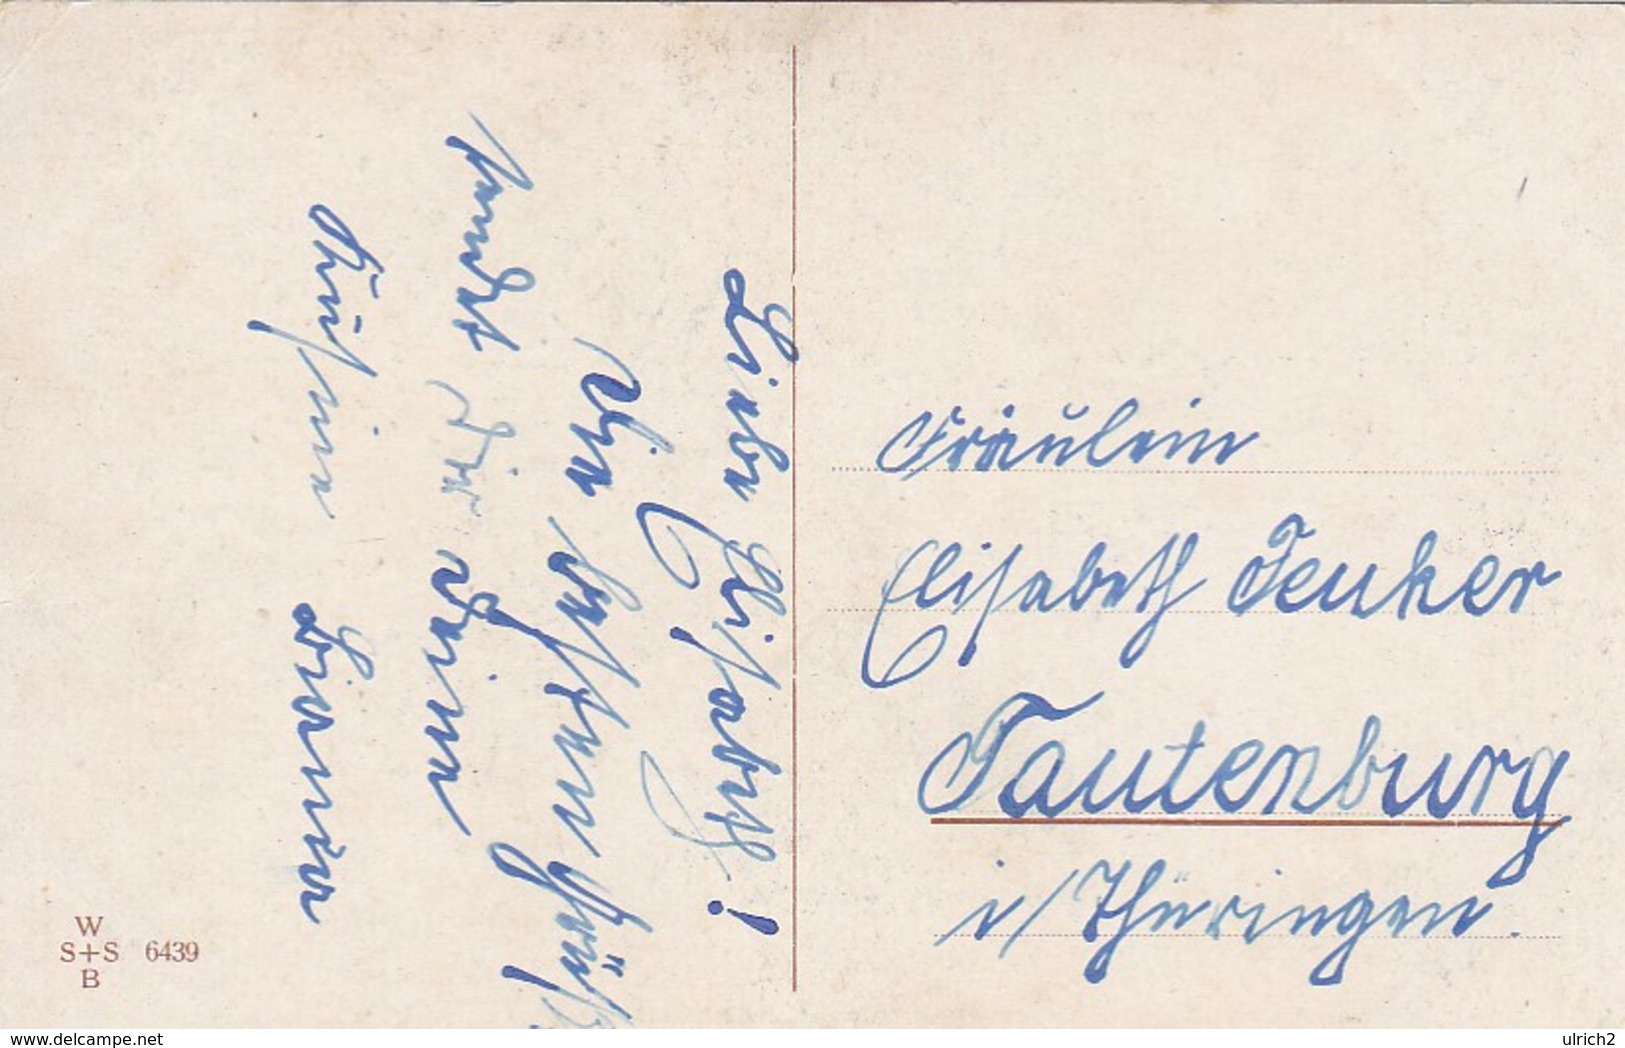 Liebe Elisabeth!
Die besten Grüße
sendet Dir Deine
Kusine
Fräulein
Elisabeth Zenker
Tautenburg
i/Thüringen.
W
S+S 6439
B
www.delcampe.net
ulrich2